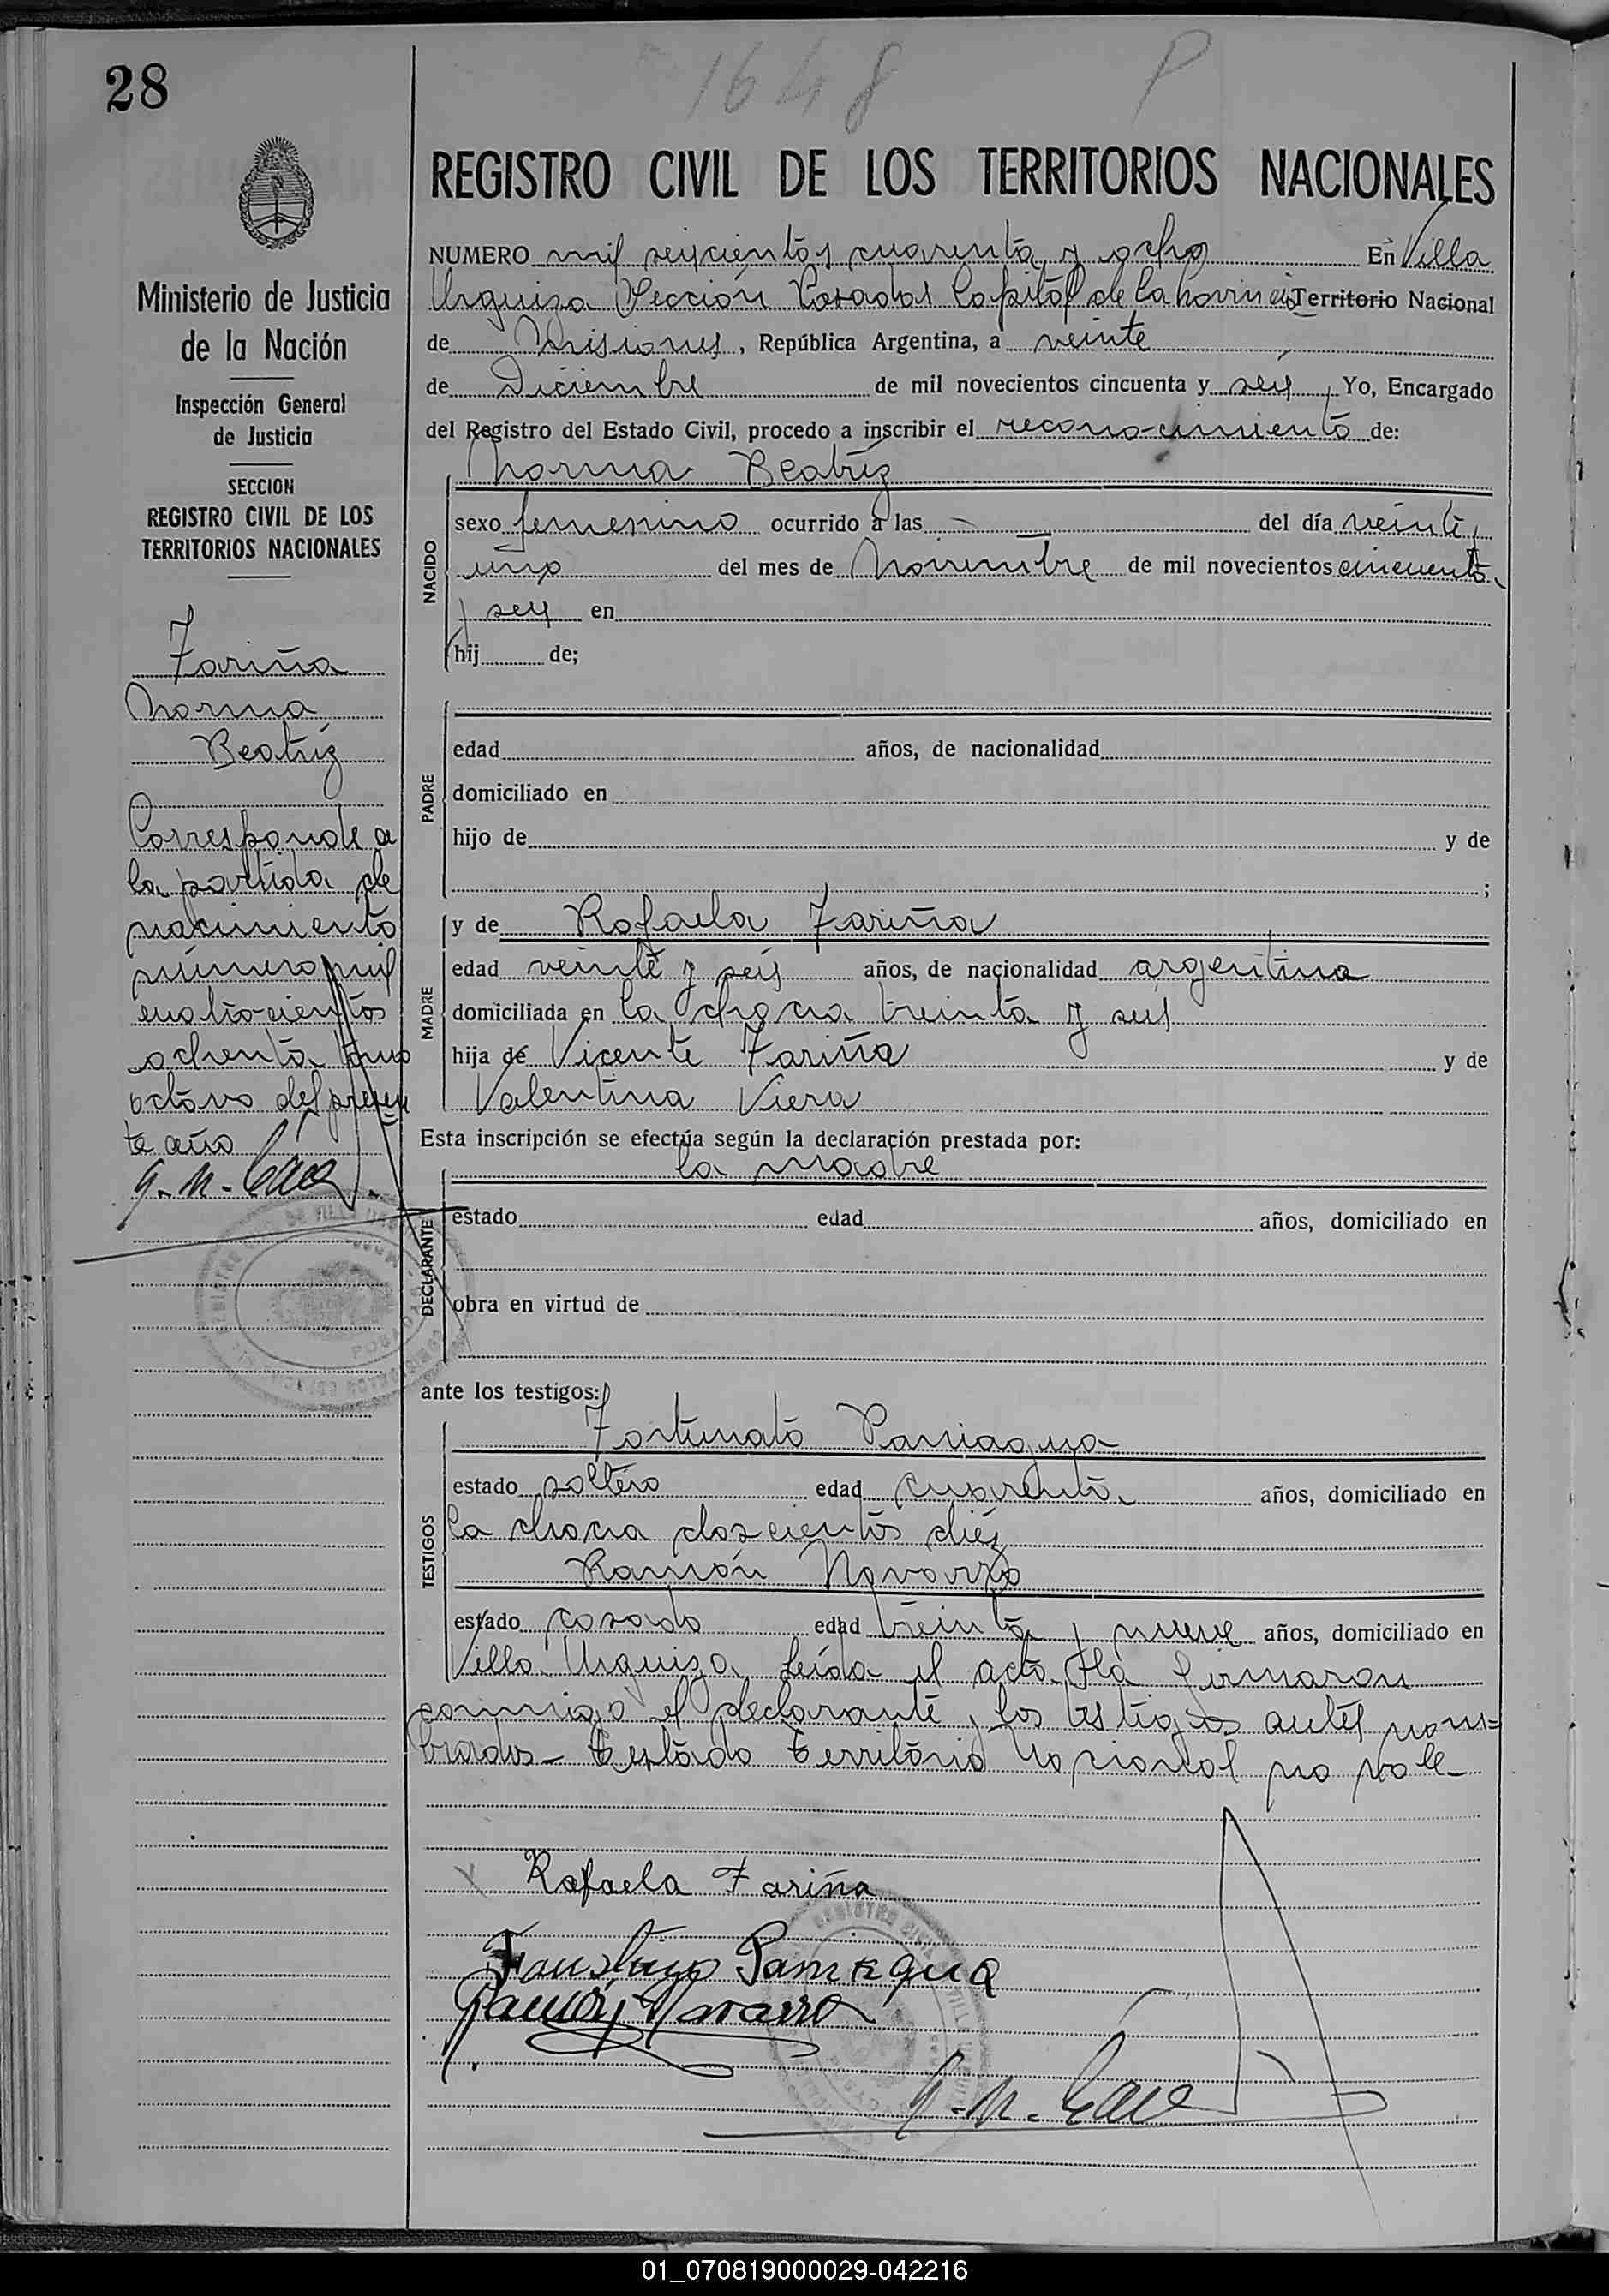 28
1648 P
REGISTRO CIVIL DE LOS TERRITORIOS NACIONALES
Ministerio de Justicia
de la Nación
Inspección General
de Justicia
SECCION
REGISTRO CIVIL DE LOS
TERRITORIOS NACIONALES
Fariña
Norma
Beatriz
Corresponde a
la partida de
nacimiento
número mil
cuatrocientos
ochenta tomo
octavo del presen
te año
NUMERO mil seiscientos cuarenta y ocho En Villa
Urquiza Sección Posadas Capital de la Provincia Territorio Nacional
de Misiones, República Argentina, a veinte
de Diciembre de mil novecientos cincuenta y seis, Yo, Encargado
del Registro del Estado Civil, procedo a inscribir el reconocimiento de:
Norma Beatriz
NACIDO
sexo femenino ocurrido a las — del día veinte y
uno del mes de Noviembre de mil novecientos cincuenta
y seis en
hij de;
PADRE
edad años, de nacionalidad
domiciliado en
hijo de y de
;
MADRE
y de Rafaela Fariña
edad veinte y seis años, de nacionalidad argentina
domiciliada en la chacra treinta y seis
hija de Vicente Fariña y de
Valentina Viera
Esta inscripción se efectúa según la declaración prestada por:
la madre
DECLARANTE
estado edad años, domiciliado en
obra en virtud de
ante los testigos:
TESTIGOS
Fortunato Paniagua
estado soltero edad cuarenta años, domiciliado en
la chacra doscientos diez
Ramón Navarro
estado casado edad treinta y nueve años, domiciliado en
Villa Urquiza. Leída el acta la firmaron
conmigo el declarante y los testigos antes nom=
brados— Testado Territorio Nacional no vale—
Rafaela Fariña
Faustino Paniagua
Ramón Navarro
01_070819000029-042216